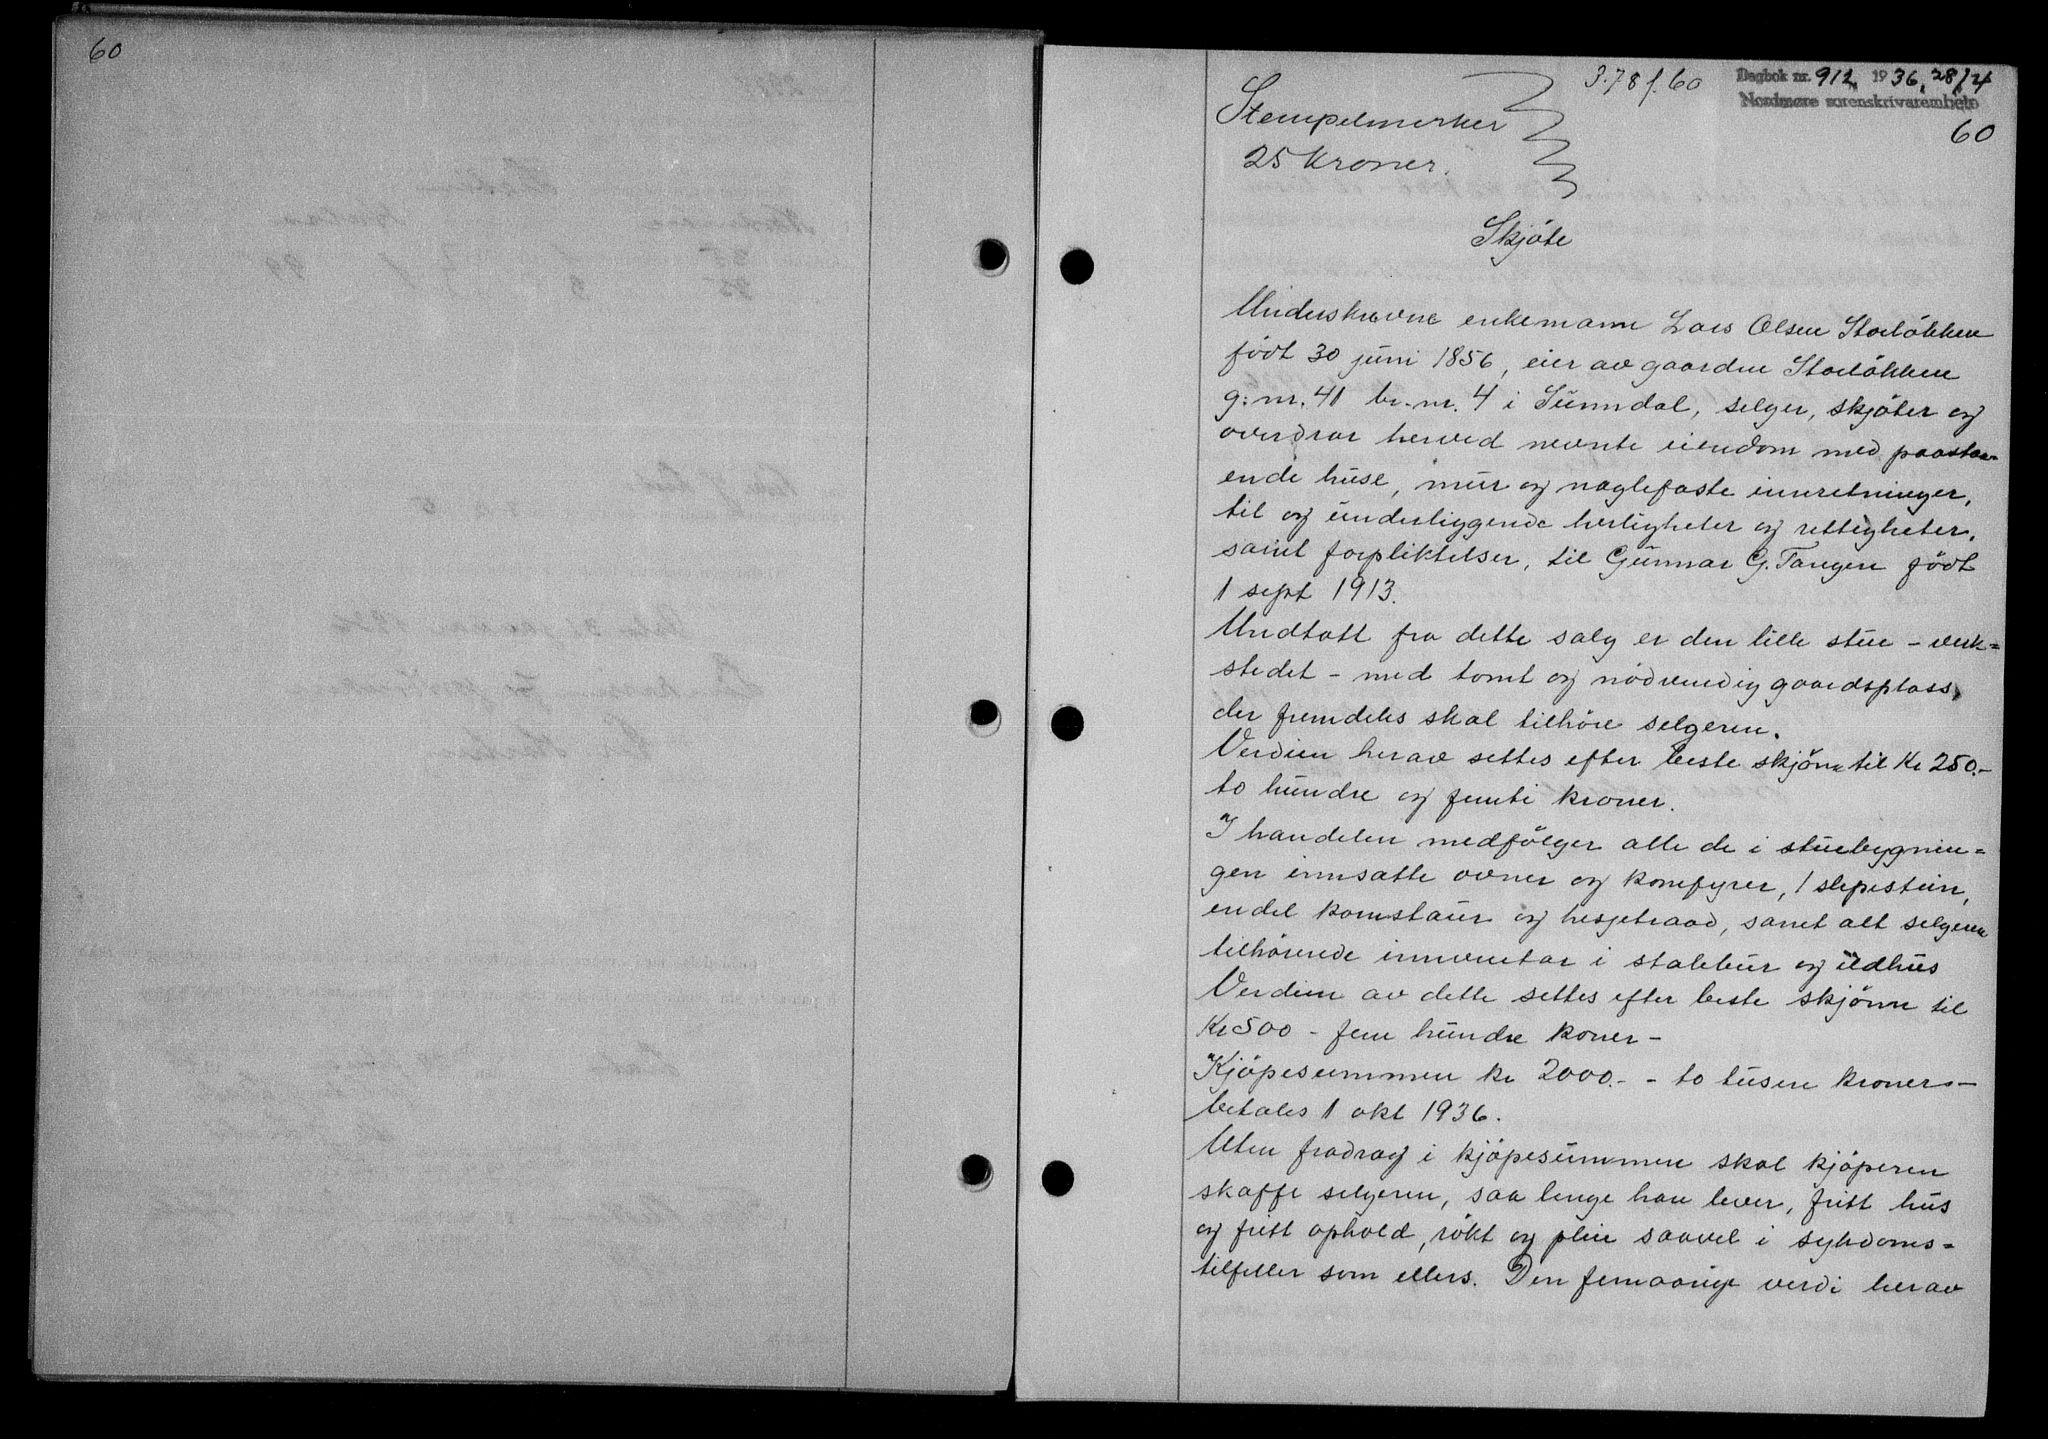 60
3.78 f. 60
Dagbok nr. 912 1936, 28/4
Nordmøre sorenskrivarembete
60
Stempelmerker
25 kroner.
Skjöte
Underskrevne enkemann Lars Olsen Storlökken
født 30 juni 1856, eier av gaarden Storlökken
g:nr. 41 br.nr. 4 i Sunndal, selger, skjöter og
overdrar herved nevnte eiendom med paastaa-
ende huse, mur og naglefaste innretninger,
til og underliggende herligheter og rettigheter,
samt forpliktelser, til Gunnar G. Tangen født
1 sept 1913.
Undtatt fra dette salg er den lille stue - verk=
stedet - med tomt og nödvendig gaardsplass,
der fremdeles skal tilhöre selgeren.
Verdien herav settes efter beste skjönn til Kr 250.-
to hundre og femti kroner.
I handelen medfölger alle de i stuebygnin=
gen innsatte ovner og komfyrer, 1 slipestein,
endel kornstaur og hesjetraad, samt alt selgeren
tilhörende innventar i stabbur og ildhus
Verdien av dette settes efter beste skjönn til
Kr 500 - fem hundre koner -
Kjöpesummen kr 2000.- - to tusen kroner -
betales 1 okt 1936.
Uten fradrag i kjöpesummen skal kjöperen
skaffe selgeren, saa lenge han lever, fritt hus
og fritt ophold, rökt og pleie saavel i sykdoms=
tilfeller som ellers. Den femaarige verdi herav